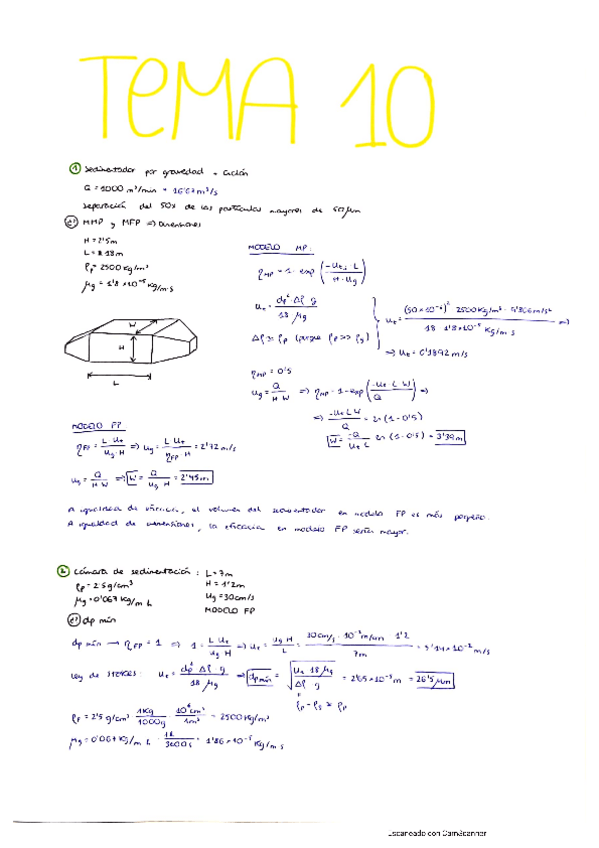 TEMA 10
① Sedimentador por gravedad
Q = 1000 m³/min = 16'67 m³/s
separación del 50% de las partículas mayores de 50 μm
a) MMP y MFP ⇒ Dimensiones
H = 2'5m
L = 18m
ρp = 2500 Kg/m³
μg = 1'8 × 10⁻⁵ Kg/m·s
W
H
L
MODELO MP:
η_MP = 1 - exp (-Ut · L / H · Ug)
Ut = dp² · Δρ · g / 18 μg
Δρ ≈ ρp (porque ρp >> ρg)
Ut = (50 × 10⁻⁶)² 2500 Kg/m³ · 9'806 m/s² / 18 · 1'8 × 10⁻⁵ Kg/m s ⇒
⇒ Ut = 0'1892 m/s
η_MP = 0'5
Ug = Q / H W ⇒ η_MP = 1 - exp (-Ut L W / Q) ⇒
⇒ -Ut L W / Q = ln (1 - 0'5)
W = -Q / Ut L ln (1 - 0'5) = 3'39 m
MODELO FP
η_FP = L Ut / Ug · H ⇒ Ug = L Ut / η_FP H = 2'72 m/s
Ug = Q / H W ⇒ W = Q / Ug H = 2'45 m
A igualdad de eficacia, el volumen del sedimentador en modelo FP es más pequeño.
A igualdad de dimensiones, la eficacia en modelo FP sería mayor.
② Cámara de sedimentación : L = 7m
ρp = 2'5 g/cm³ H = 1'2m
μg = 0'067 Kg/m h Ug = 30 cm/s
MODELO FP
a) dp mín
dp mín → η_FP = 1 ⇒ 1 = L Ut / Ug H ⇒ Ut = Ug H / L = 30 cm/s · 10⁻² m/cm · 1'2 / 7m = 5'14 × 10⁻² m/s
Ley de STOKES : Ut = dp² Δρ · g / 18 μg ⇒ dp mín = √(Ut 18 μg / Δρ g) = 2'65 × 10⁻⁵ m = 26'5 μm
ρp - ρg ≈ ρp
ρp = 2'5 g/cm³ · 1Kg / 1000g · 10⁶ cm³ / 1m³ = 2500 Kg/m³
μg = 0'067 Kg/m h · 1h / 3600 s = 1'86 × 10⁻⁵ Kg/m s
Escaneado con CamScanner